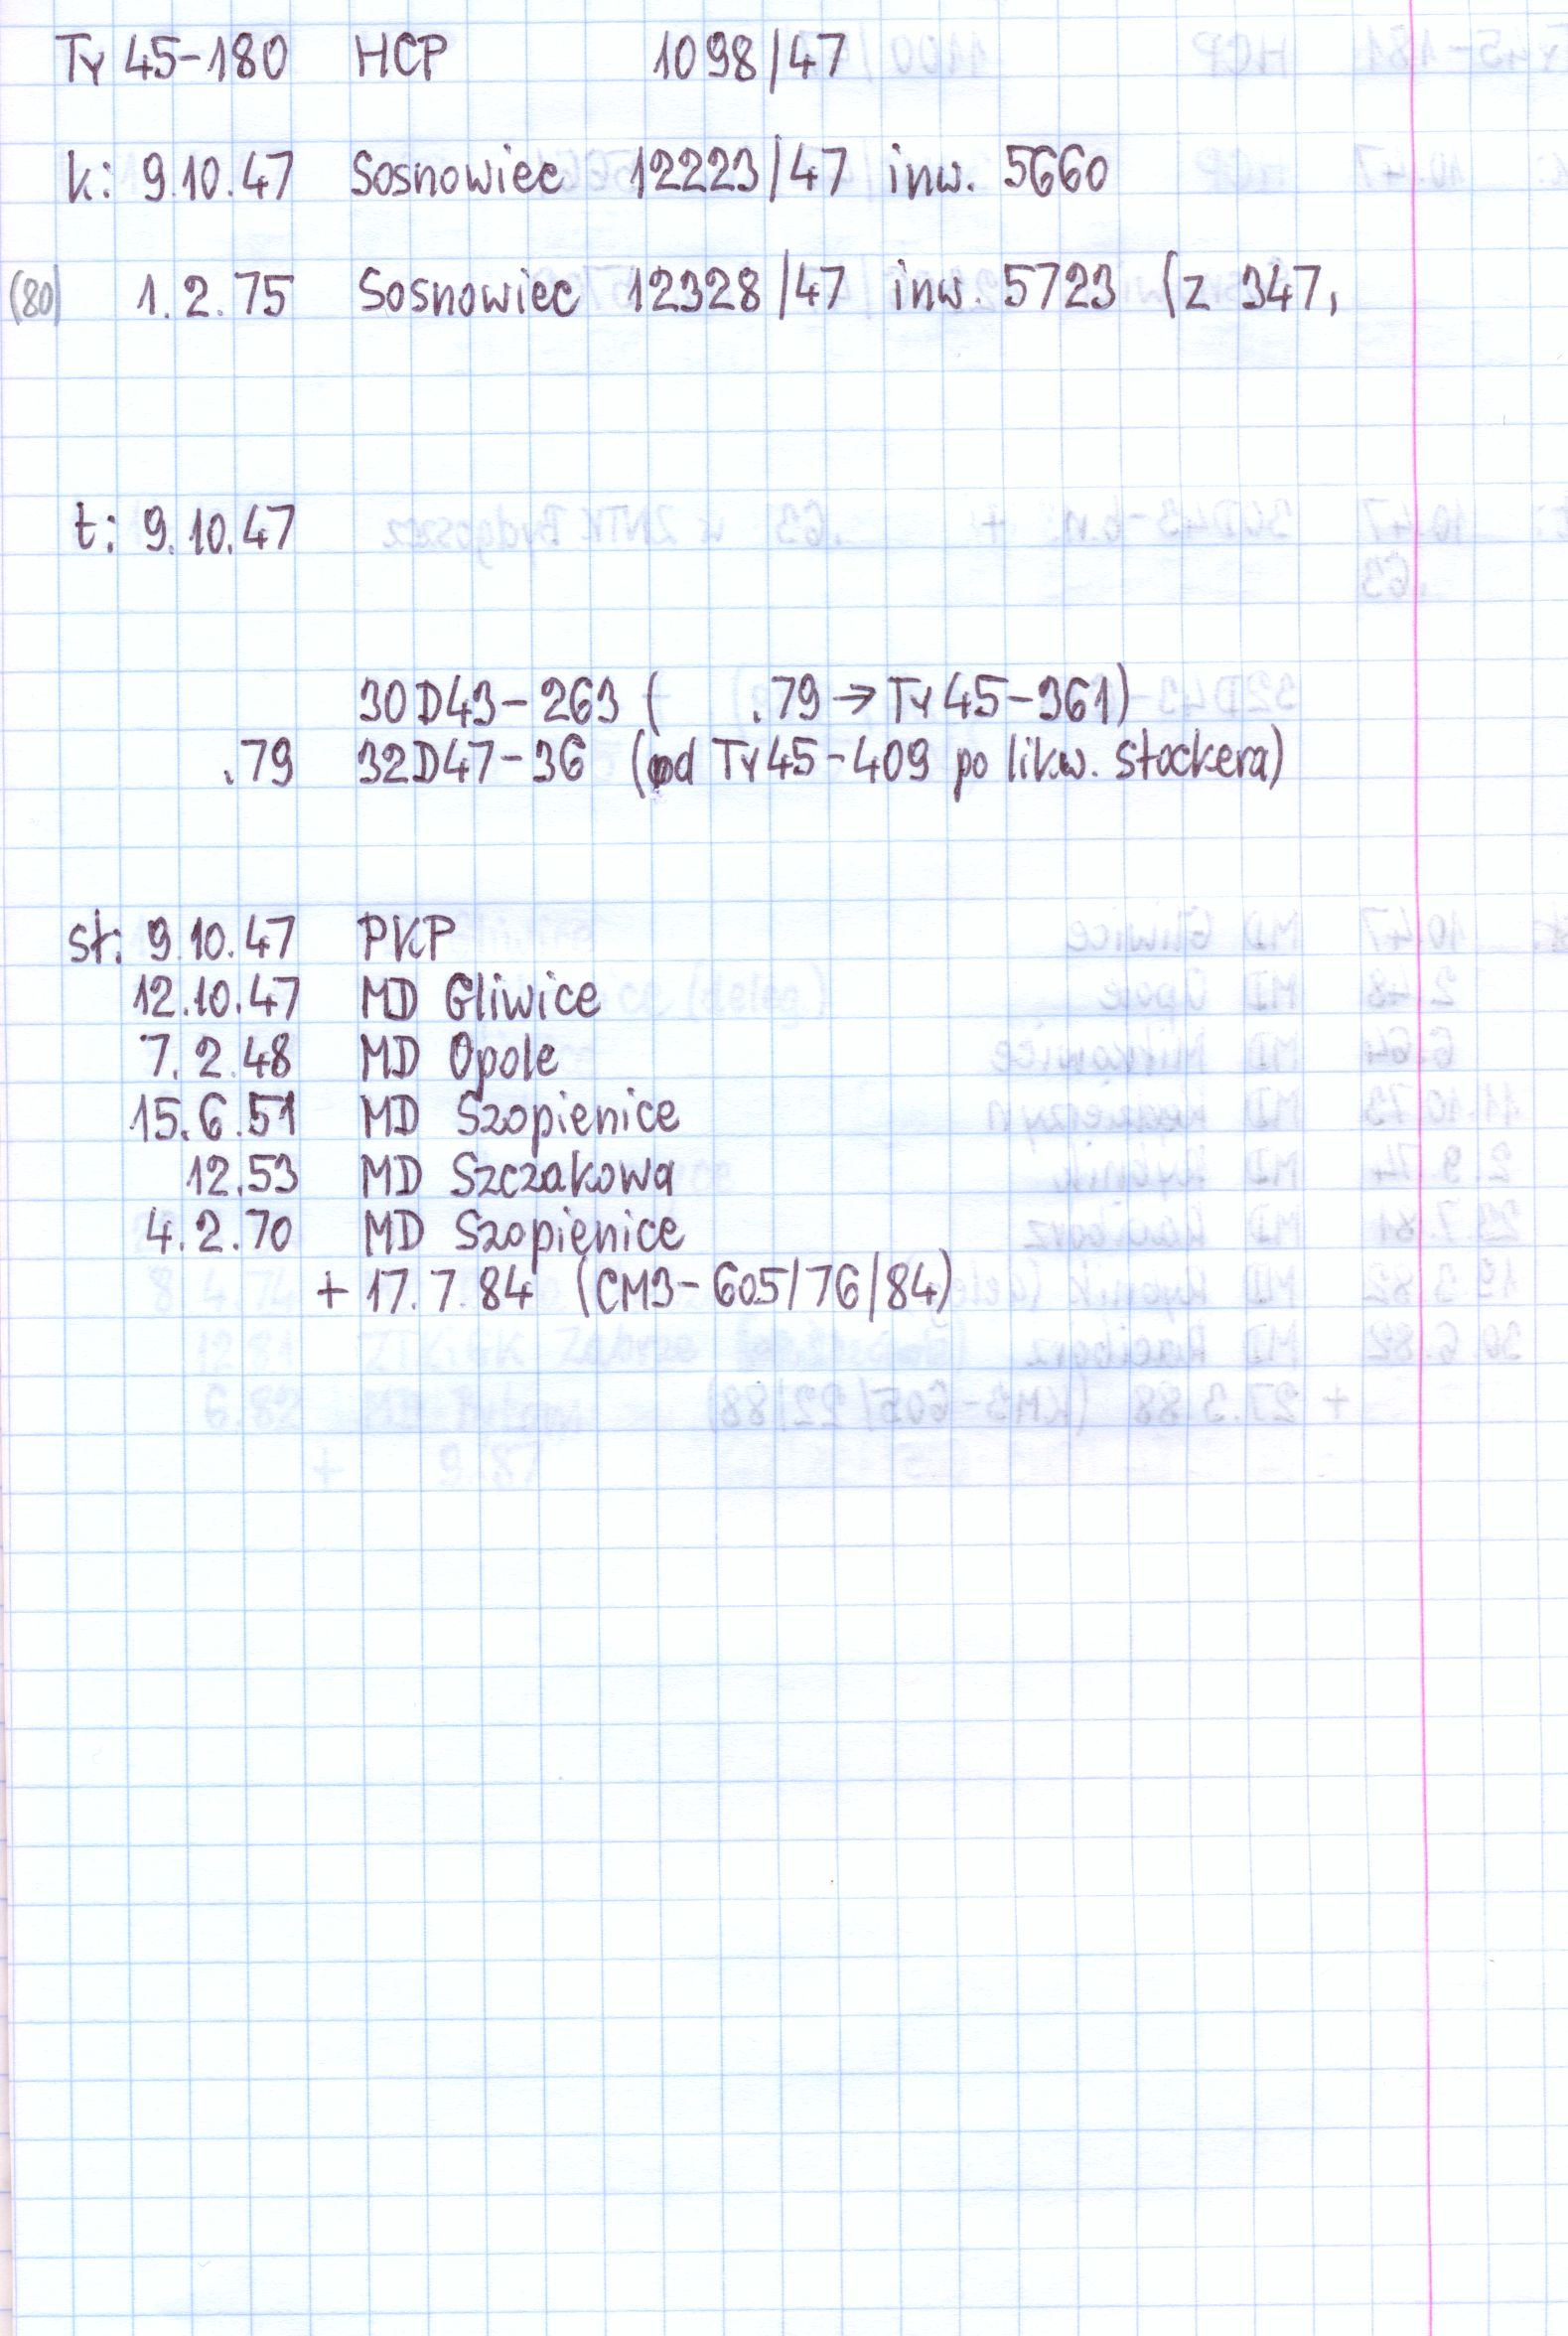 Ty 45-180 HCP 1098/47
k: 9.10.47 Sosnowiec 12223/47 inw. 5660
(80) 1.2.75 Sosnowiec 12328/47 inw. 5723 (z 347,
t: 9.10.47
30D43-263 ( .79 → Ty45-361)
.79 32D47-36 (od Ty45-409 po likw. stockera)
st: 9.10.47 PKP
12.10.47 MD Gliwice
7.2.48 MD Opole
15.6.51 MD Szopienice
12.53 MD Szczakowa
4.2.70 MD Szopienice
+ 17.7.84 (CM3-605/76/84)